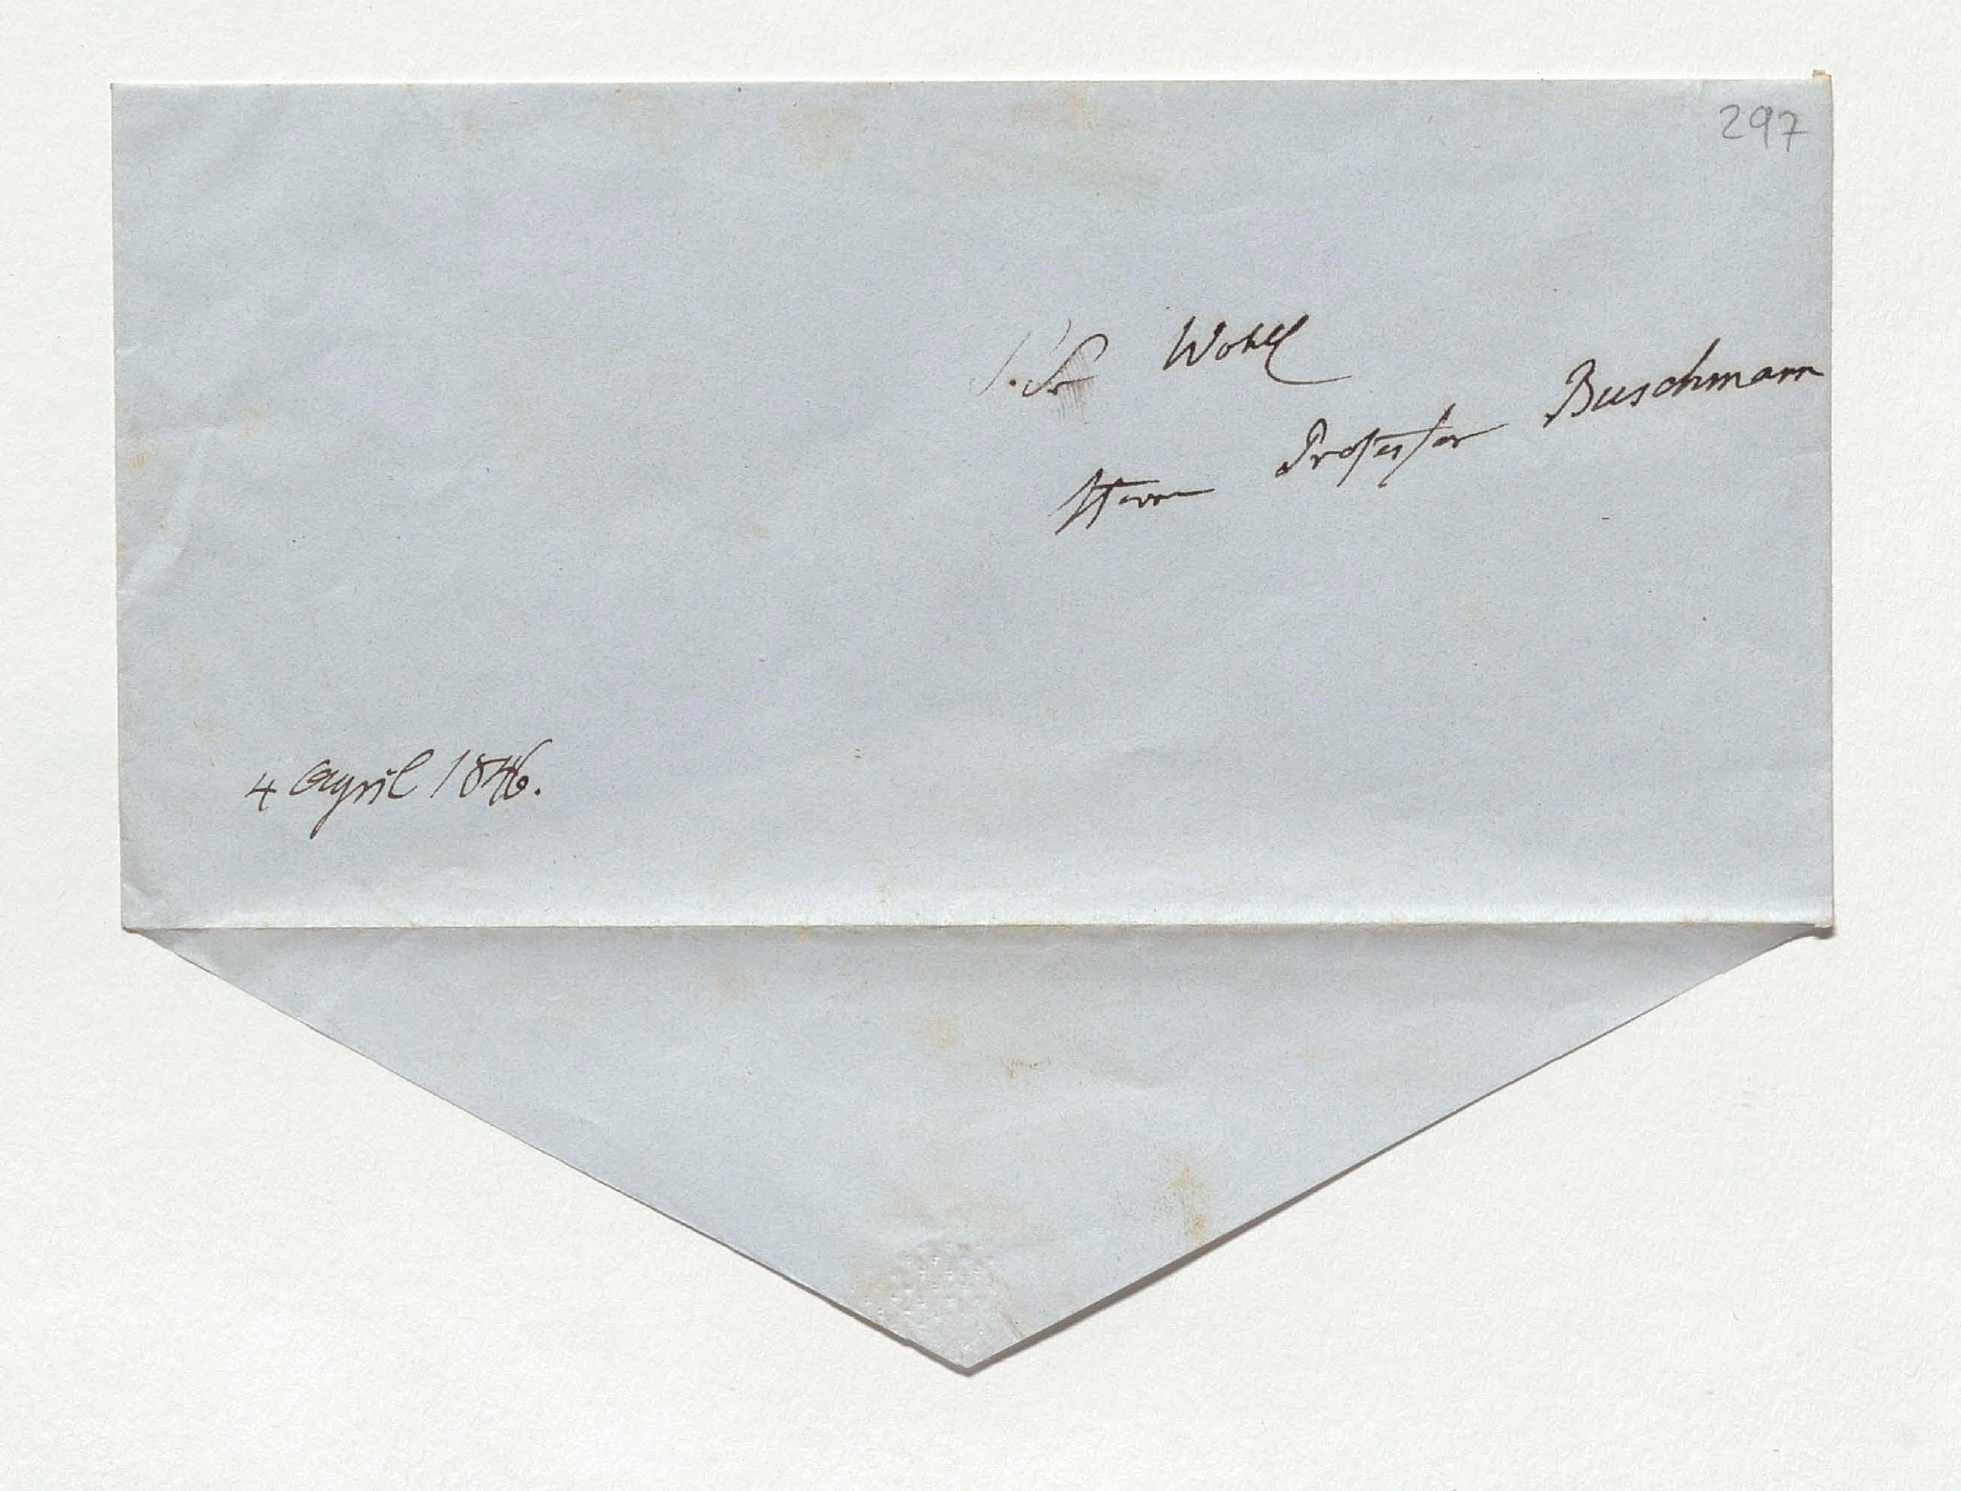 297
Sr Wohl
Herrn Professor Buschmann
4 April 1846.